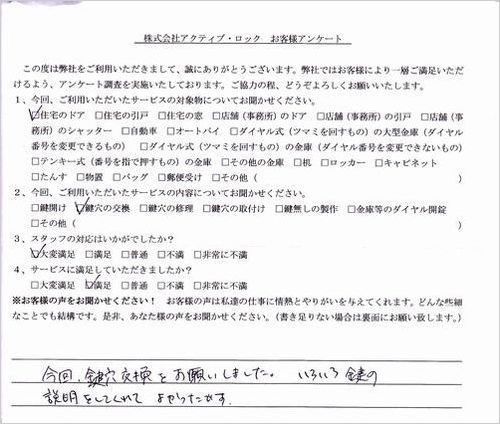 株式会社アクティブ・ロック　お客様アンケート
この度は弊社をご利用いただきまして、誠にありがとうございます。弊社ではお客様により一層ご満足いただ
けるよう、アンケート調査を実施いたしております。ご協力の程、どうぞよろしくお願いいたします。
1、今回、ご利用いただいたサービスの対象物についてお聞かせください。
☑住宅のドア　□住宅の引戸　□住宅の窓　□店舗（事務所）のドア　□店舗（事務所）の引戸　□店舗（事
務所）のシャッター　□自動車　□オートバイ　□ダイヤル式（ツマミを回すもの）の大型金庫（ダイヤル
番号を変更できるもの）　□ダイヤル式（ツマミを回すもの）の金庫（ダイヤル番号を変更できないもの）
□テンキー式（番号を指で押すもの）の金庫　□その他の金庫　□机　□ロッカー　□キャビネット
□たんす　□物置　□バッグ　□郵便受け　□その他（　　　　　　　　　　）
2、今回、ご利用いただいたサービスの内容についてお聞かせください。
□鍵開け　☑鍵穴の交換　□鍵穴の修理　□鍵穴の取付け　□鍵無しの製作　□金庫等のダイヤル開錠
□その他（　　　　　　　　　　）
3、スタッフの対応はいかがでしたか？
☑大変満足　□満足　□普通　□不満　□非常に不満
4、サービスに満足していただきましたか？
□大変満足　☑満足　□普通　□不満　□非常に不満
※お客様の声をお聞かせください！　お客様の声は私達の仕事に情熱とやりがいを与えてくれます。どんな些細
なことでも結構です。是非、あなた様の声をお聞かせください。（書き足りない場合は裏面にお願い致します。）
今回、鍵穴交換をお願いしました。　いろいろ鍵の
説明をしてくれてよかったです。